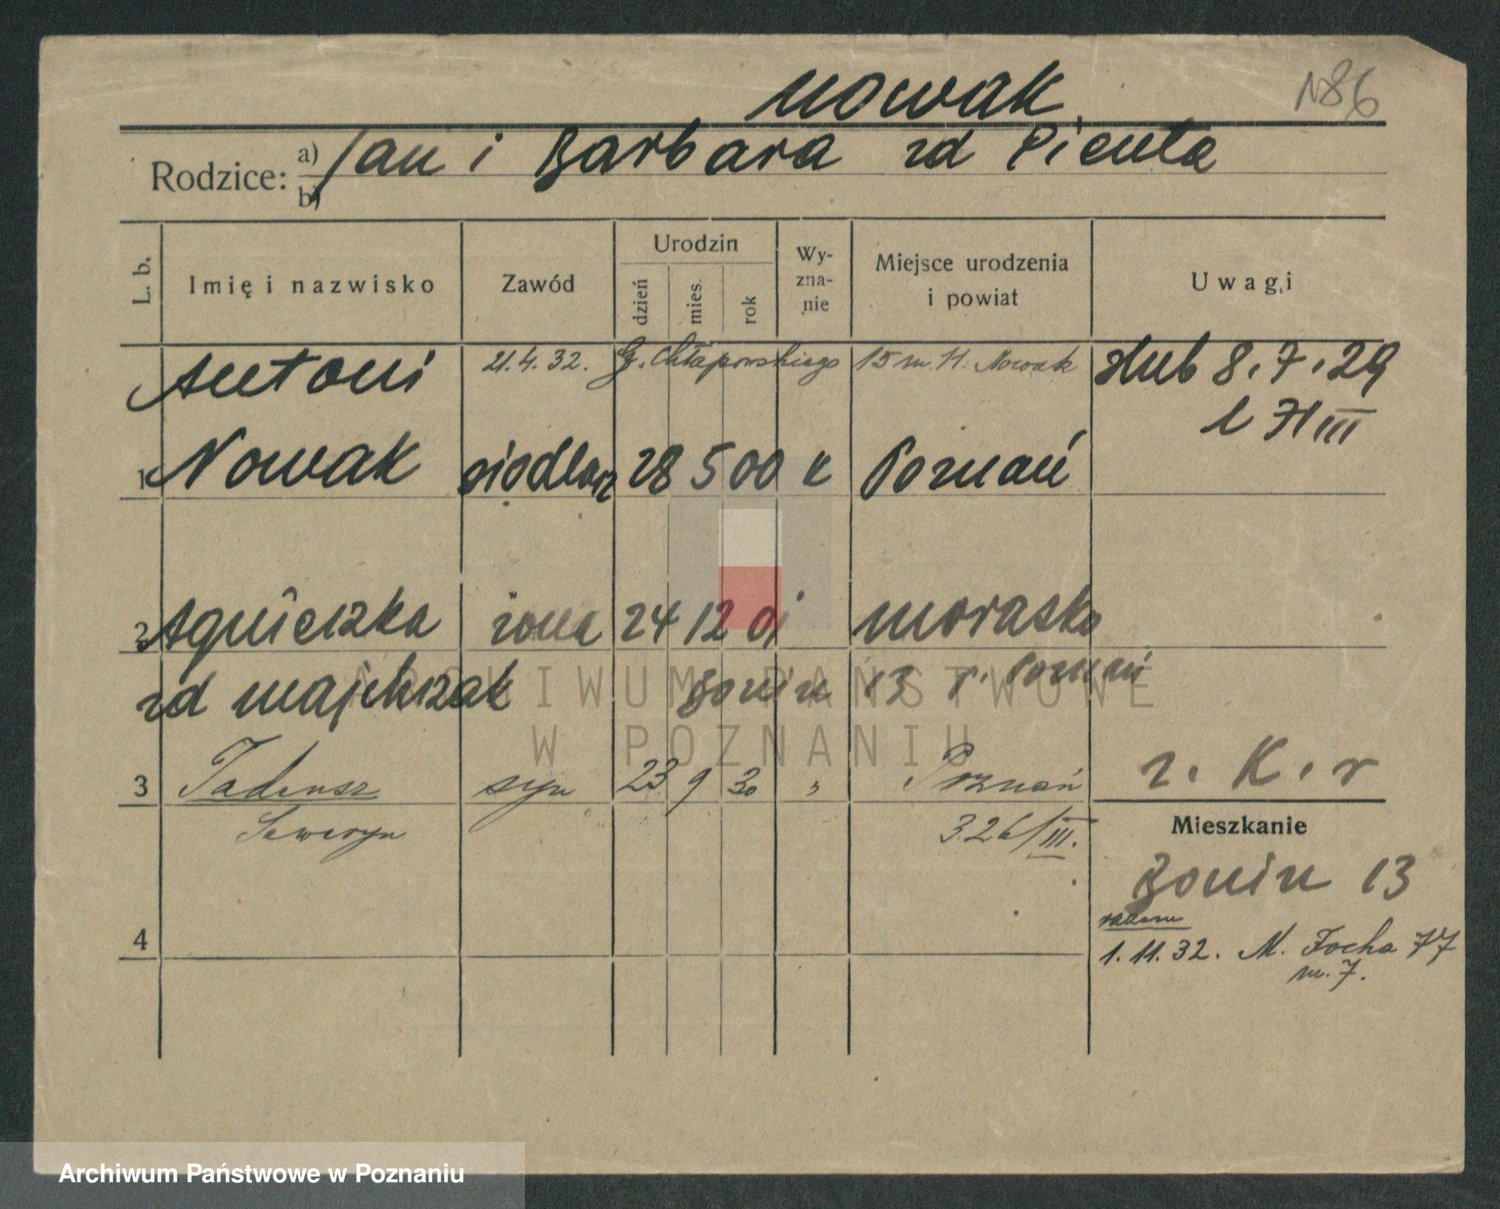 Nowak
Rodzice: a) Jan i Barbara zd Pienta
b)
L. b. Imię i nazwisko Zawód Urodzin dzień mies. rok Wy-zna-nie Miejsce urodzenia i powiat Uwagi
21.4.32. G. Chłapowskiego 15 m. 11. Nowak
Antoni ślub 8.7.29
1 Nowak siodlarz 28 5 00 k Poznań
2 Agnieszka żona 24 12 01 Morasko
zd Majchrzak Bonin 13 p. Poznań
3 Tadeusz syn 23 9 30 " Poznań z. K. r
Seweryn 326/III.
Mieszkanie
Bonin 13
4
1.11.32. M. Focha 77
m. 7.
ARCHIWUM PAŃSTWOWE
W POZNANIU
Archiwum Państwowe w Poznaniu